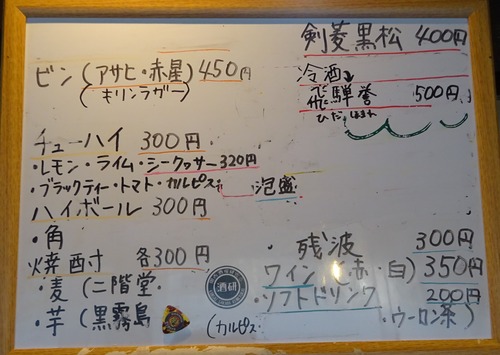 剣菱黒松 400円
ビン(アサヒ・赤星) 450円
(キリンラガー)
冷酒
飛騨誉 500円
ひだほまれ
チューハイ 300円
・レモン・ライム・シークヮサー320円
・ブラックティー・トマト・カルピス
ハイボール 300円
・角
焼酎 各300円
・麦(二階堂
・芋(黒霧島
酒研
泡盛
・残波 300円
ワイン(赤・白) 350円
・ソフトドリンク 200円
(カルピス ・ウーロン茶)